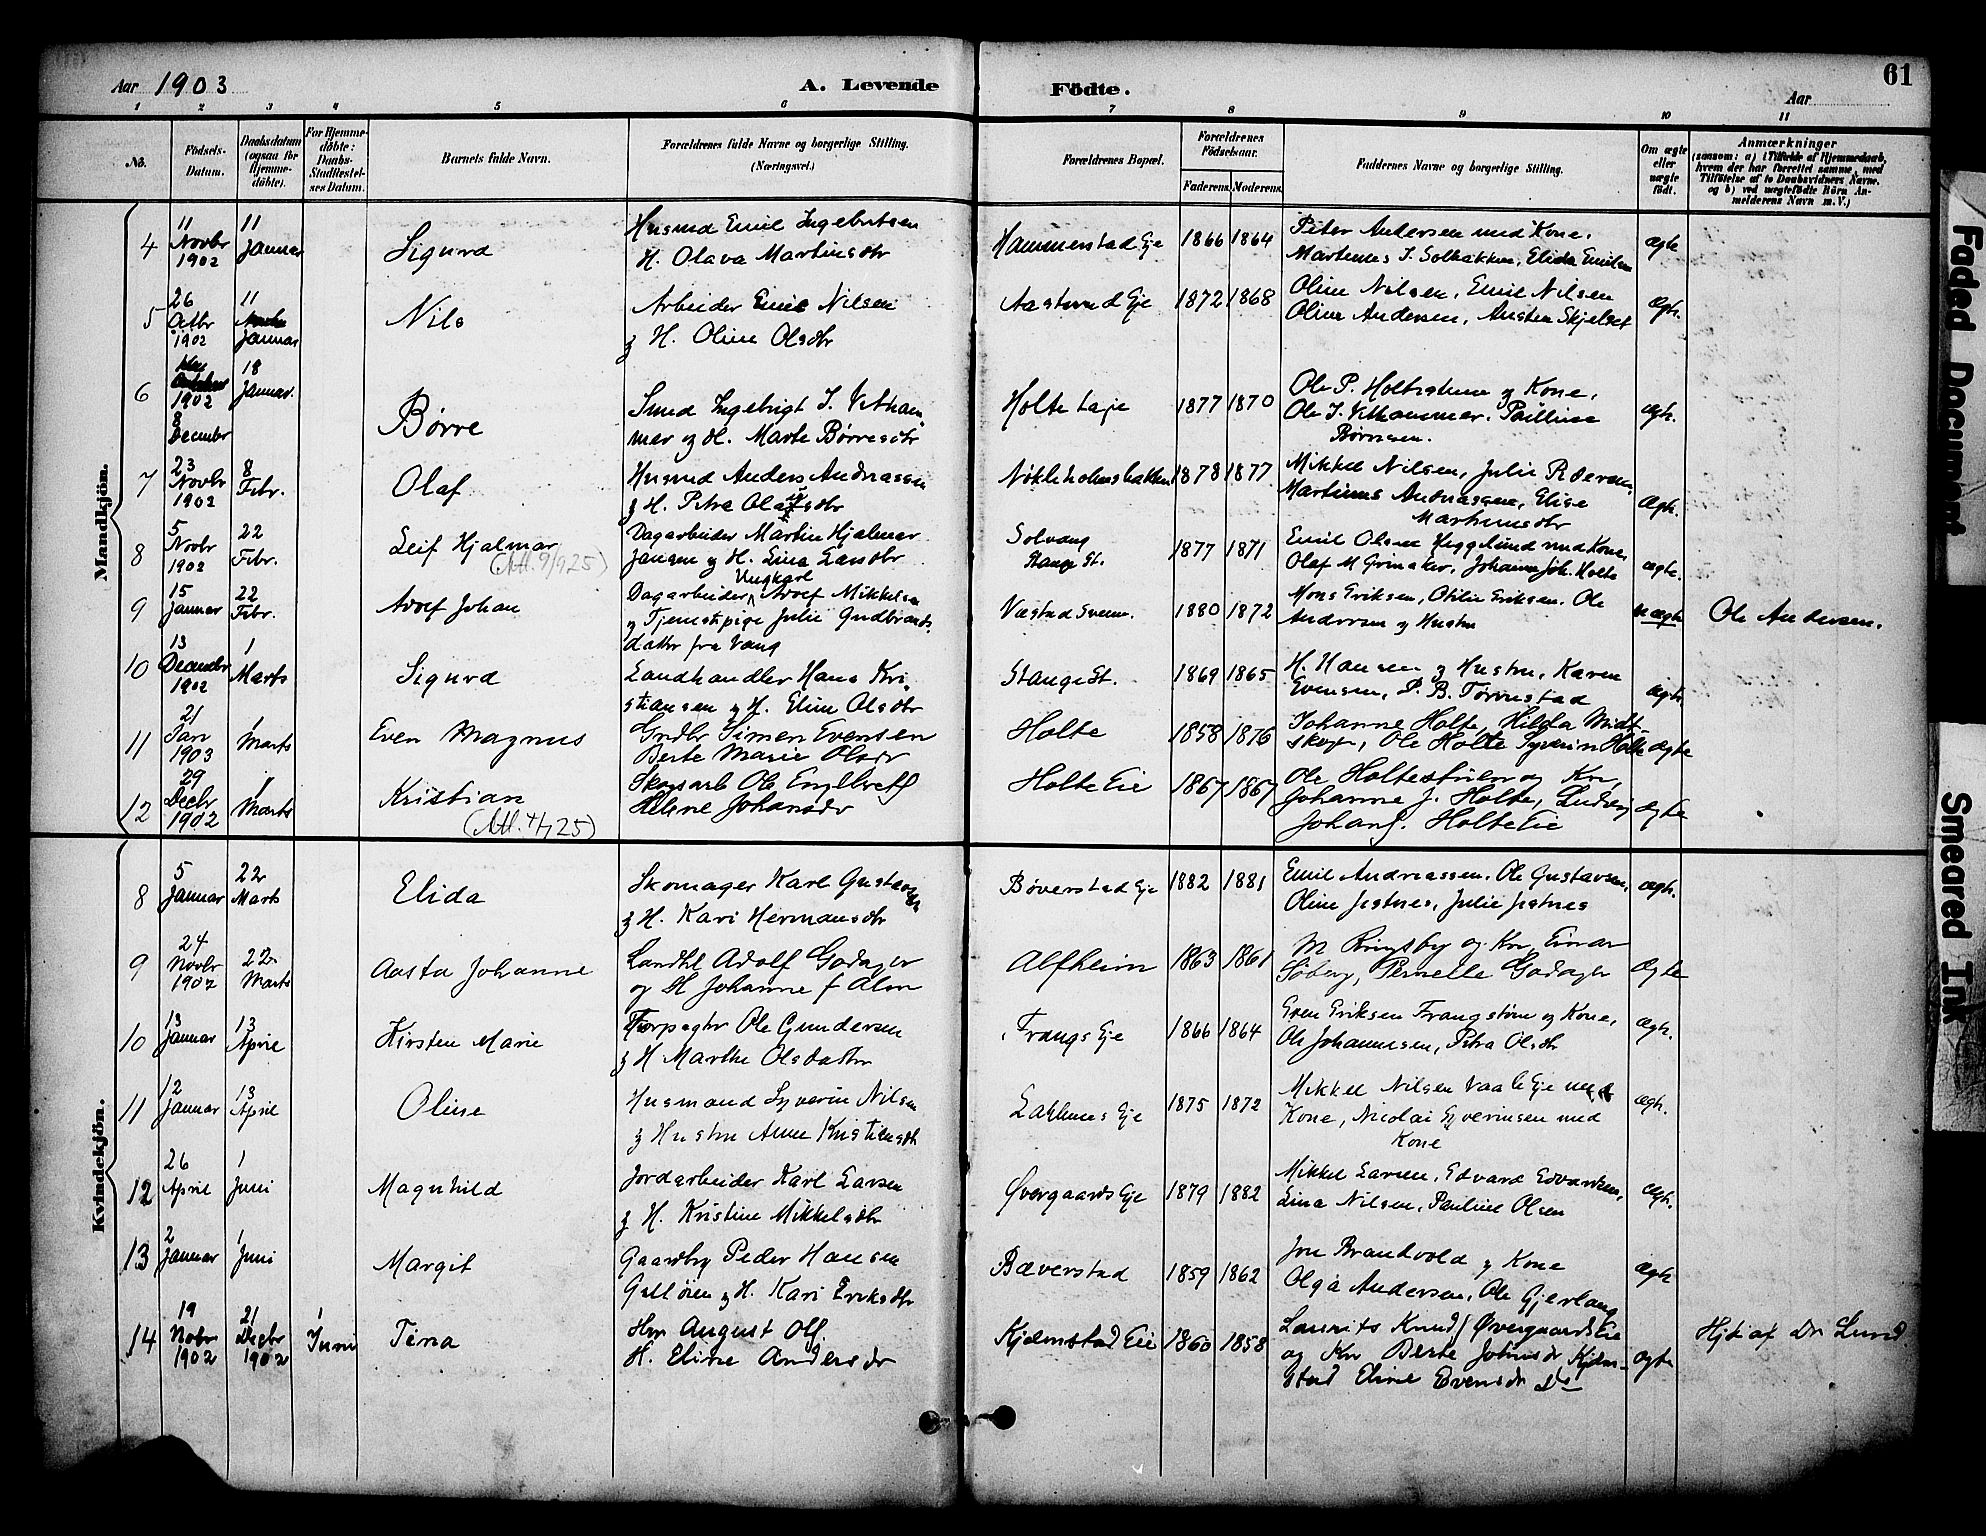 Aar 1903 A. Levende Födte. Aar 61
1 2 3 4 5 6 7 8 9 10 11
No. Födsels-Datum. Daabsdatum (ogsaa for Hjemme-döbte). For Hjemme-döbte: Daabs-Stadfæstel-ses Datum. Barnets fulde Navn. Forældrenes fulde Navne og borgerlige Stilling. (Næringsvei.) Forældrenes Bopæl. Forældrenes Födselsaar. Faderens. Moderens. Faddernes Navne og borgerlige Stilling. Om ægte eller uægte födt. Anmærkninger (saasom: a) i Tilfælde af Hjemmedaab, hvem der har forrettet samme, med Tilföielse af to Daabsvidners Navne, og b) ved uægtefödte Börn An-melderens Navn m. V.)
Mandkjön.
4 11 Novbr 1902 11 Januar Sigurd Husmd Emil Ingebretsen
H. Olava Martinsdtr Hammerstad Eje 1866 1864 Peter Andersen med Kone,
Martinus J. Solbakken, Elida Emilsen ægte
5 26 Octbr 1902 11 Januar Nils Arbeider Emil Nilsen
g H. Oline Olsdtr Aasterud Eje 1872 1868 Oline Nilsen, Emil Nilsen
Oline Andersen, Austen Skjelset Ægte.
6 1902 8 Decembr 18 Januar. Børre Smed Ingebrigt J. Vethammer
og H. Marte Børresdtr Holte Eje 1877 1870 Ole P. Holtestuen og Kone,
Ole J. Vethammer. Pauline
Børresen. ægte.
7 23 Novbr 1902 8 Febr. Olaf Husmd Anders Andreassen
g H. Petra Olafsdtr Nökleholmsbakken 1878 1877 Mikkel Nilsen, Julie Pedersen,
Martinus Andreassen, Elise
Martinusdtr Ægte.
8 5 Novbr 1902 22 Febr. Leif Hjalmar
(Att. 9/9 25) Dagarbeider Martin Hjalmar
Jansen og H. Lina Larsdtr Solvang
Stange St. 1877 1871 Emil Olsen Heggelund med Kone
Olaf M Grinaker, Johanne Joh. Holte ægte.
9 15 Januar 22 Febr. Adolf Johan Dagarbeider Ungkarl Adolf Mikkelsen
og Tjenestepige Julie Gudbrands-
datter fra Vang 1880 1872 Mons Eriksen, Otilie Eriksen. Ole
Andersen og Hustru uægte Ole Andersen.
10 13 Decembr 1902 1 Marts Sigurd Landhandler Hans Kri-
stiansen og H. Eline Olsdtr Stange St. 1869 1865 H. Hansen og Hustru, Karen
Evensen, P. B. Törrestad ægte
11 21 Jan 1903 1 Marts Even Magnus Grdbr Simen Evensen
Berte Marie Olsdr Holte 1858 1876 Johanne Holte, Hilda Midt-
skog, Ole Holte Syverin Holte ægte
12 29 Decbr 1902 1 Marts Kristian
Skogsarb Ole Engebreth
Helene Johansdr Holte Eie 1867 1867 Ole Holtestuen og Kn,
Johanne J. Holte, Ludvig
Johans. Holte Eie ægte
Kvindekjön.
8 5 Januar 22 Marts Elida Skomager Karl Gustavsen
g H. Kari Hermansdtr Bøverstad Eje 1882 1881 Emil Andreassen, Ole Gustavsen,
Oline Jestnes, Julie Jestnes ægte.
9 24 Novbr 1902 22 Marts Aasta Johanne Landhl Adolf Godager
og H Johanne f Alm Alfheim 1863 1861 M Ringsby og Kn, Einar
Söberg, Pernelle Godager Ægte
10 13 Januar 13 April Kirsten Marie Forpagtr Ole Gundersen
g H Marthe Olsdatter Frangs Eje 1866 1864 Even Eriksen Frangstöen og Kone,
Ole Johannesen, Petra Olsdtr Ægte.
11 12 Januar 13 April Oline Husmand Syverin Nilsen
g Hustru Anne Kristiansdtr 1875 1872 Mikkel Nilsen Vaale Eje med
Kone, Nicolai Syverinsen med
Kone Ægte.
12 26 April 1 Juni Magnhild Jordarbeider Karl Larsen
g H. Kristine Mikkelsdtr Øvergaards Eje 1879 1882 Mikkel Larsen, Edvard Edvardsen,
Lina Nilsen, Pauline Olsen Ægte.
13 2 Januar 1 Juni Margit Gaardbr Peder Hansen
Gulløien og H. Kari Eriksdtr Bæverstad 1859 1862 Jon Brandvold g Kone
Olga Andersen, Ole Gjerlaug Ægte
14 19 Nobr 1902 21 Decbr 1902 1 Juni Tina Hm August Ols.
H. Eline Andersdr Kjelmstad Eie 1860 1858 Laurits Knuds Øvergaards Eie
og Kn Berte Johnsdr Kjelm-
stad Eline Evensdr Do ægte Hjd af Dr Lund
Faded Document
Smeared Ink